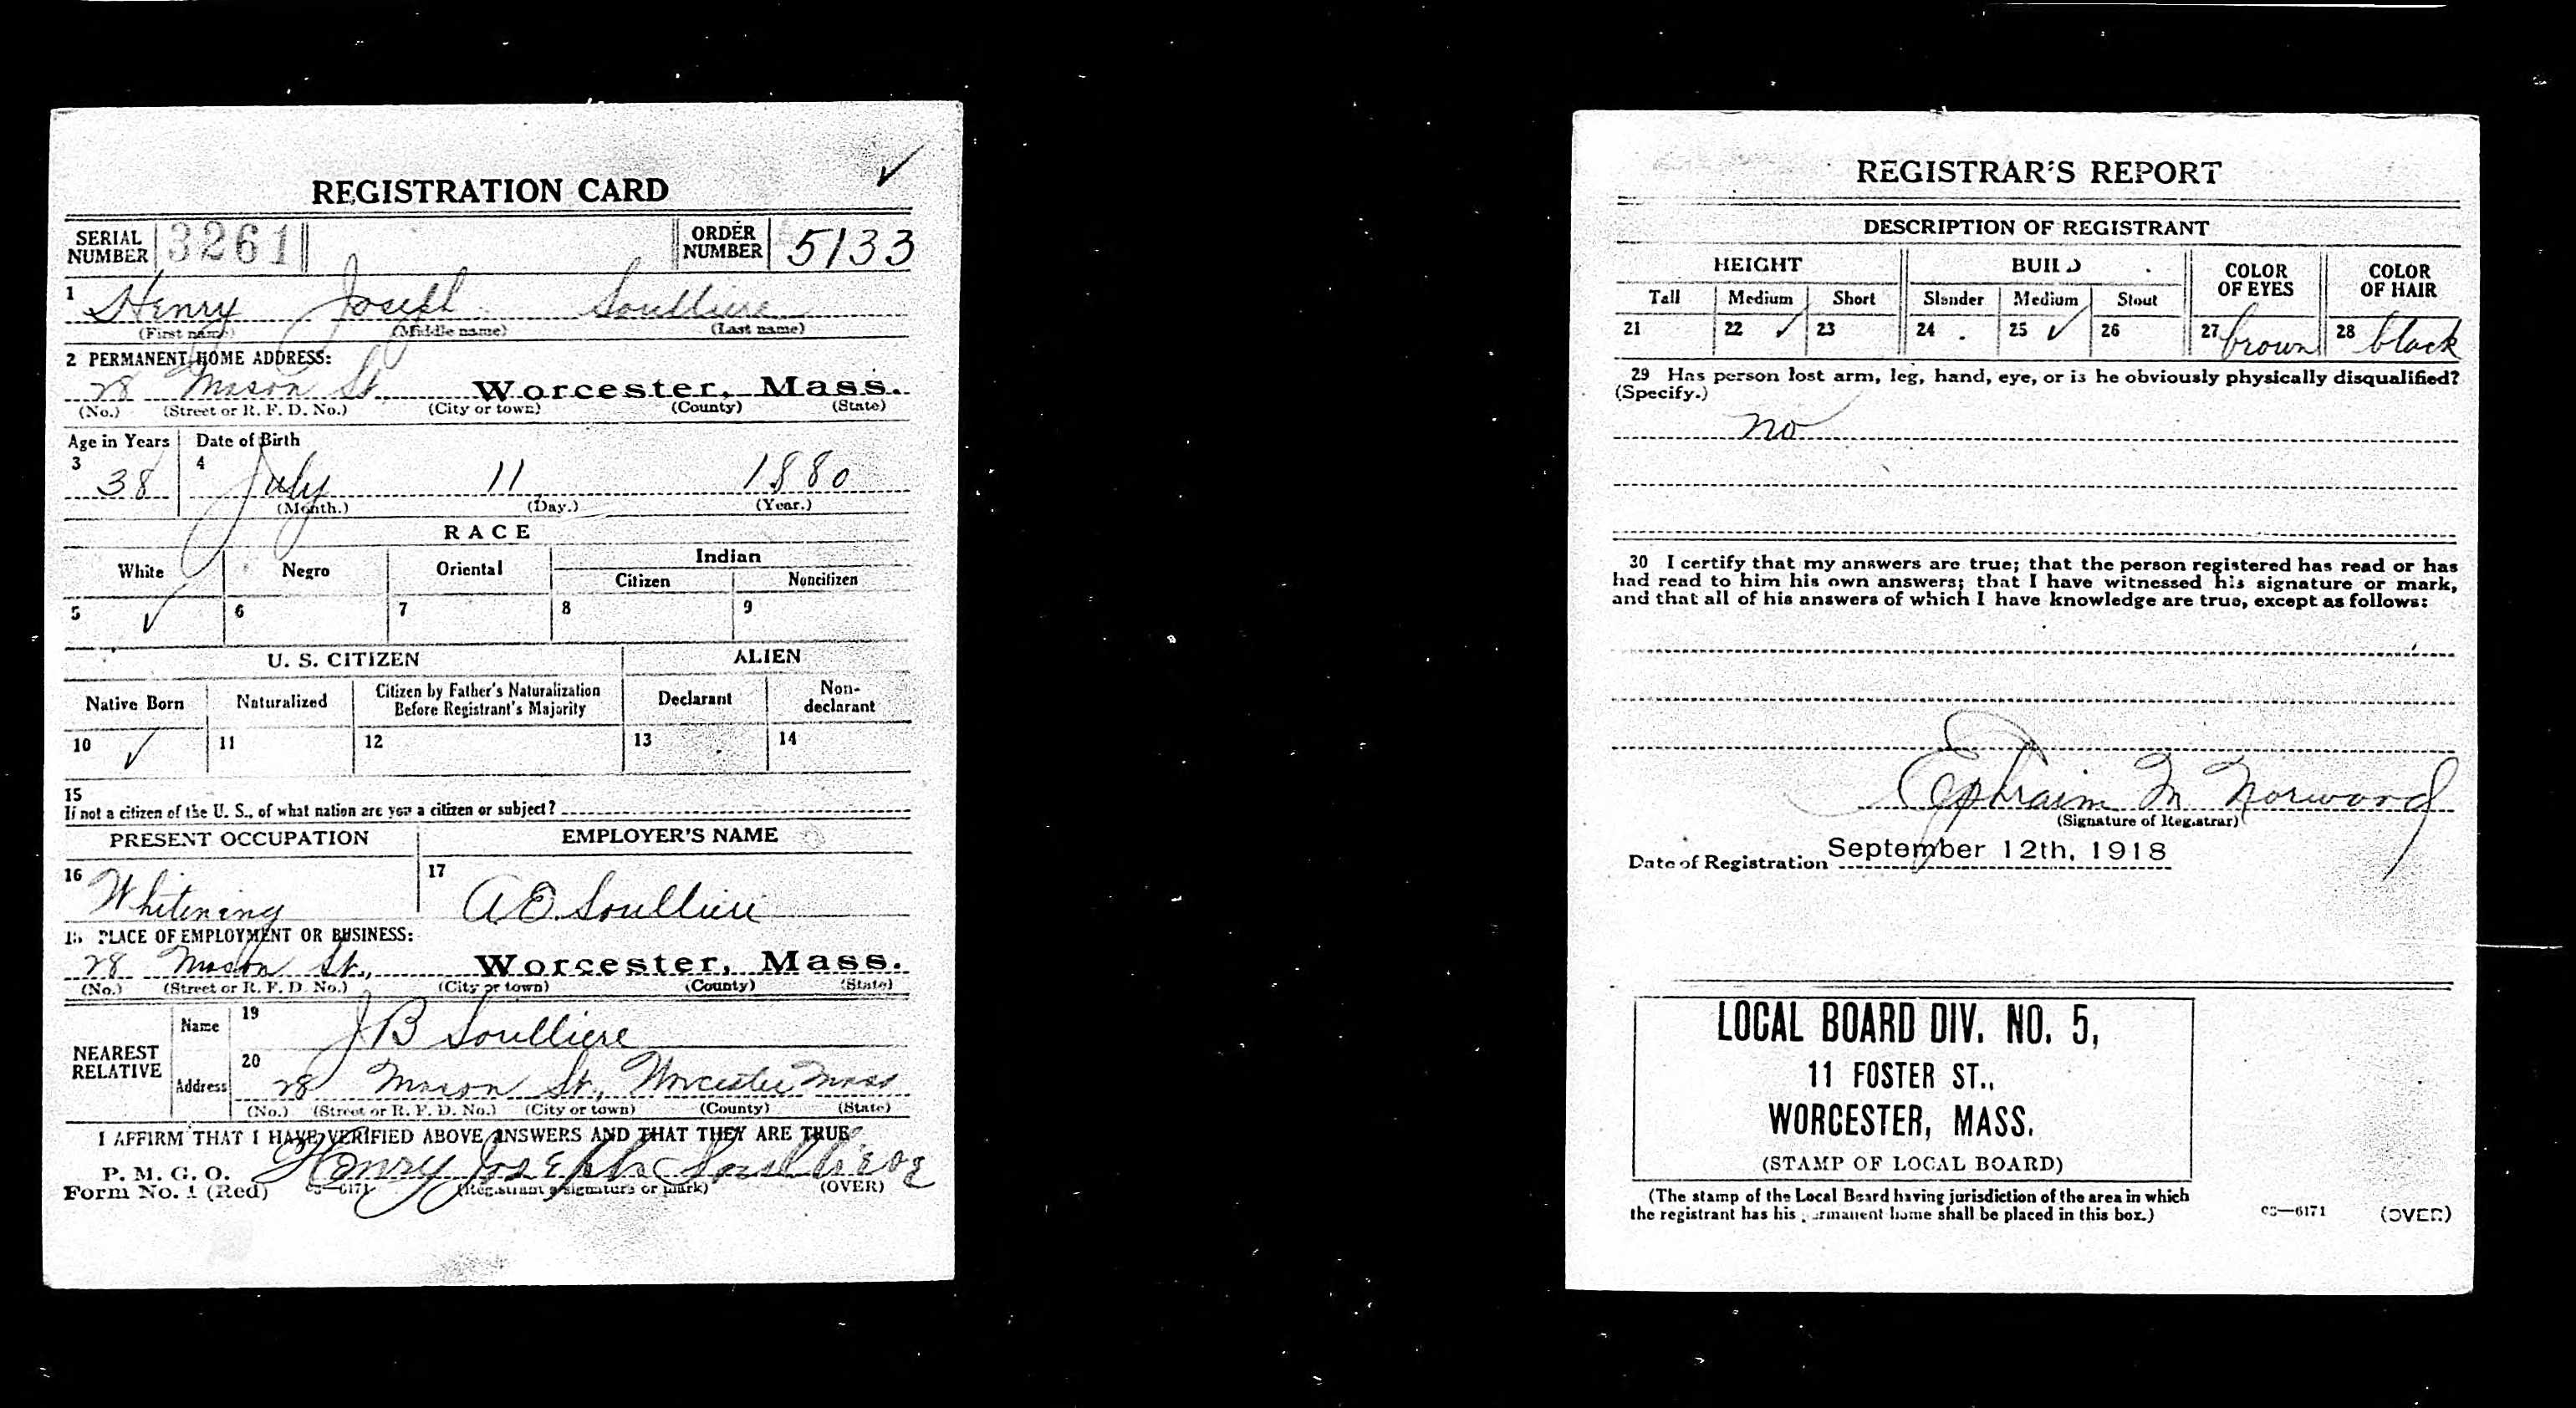 REGISTRATION CARD
SERIAL NUMBER 3261 ORDER NUMBER 5133
1 Henry Joseph Soulliere
(First name) (Middle name) (Last name)
2 PERMANENT HOME ADDRESS:
28 Mason St. Worcester, Mass.
(No.) (Street or R. F. D. No.) (City or town) (County) (State)
Age in Years Date of Birth
3 38 4 July 11 1880
(Month.) (Day.) (Year.)
RACE
White Negro Oriental Indian
Citizen Noncitizen
5 ✓ 6 7 8 9
U. S. CITIZEN ALIEN
Native Born Naturalized Citizen by Father's Naturalization Before Registrant's Majority Declarant Non-declarant
10 ✓ 11 12 13 14
15
If not a citizen of the U. S., of what nation are you a citizen or subject?
PRESENT OCCUPATION EMPLOYER'S NAME
16 Whitening 17 A E Soulliere
18 PLACE OF EMPLOYMENT OR BUSINESS:
28 Mason St., Worcester, Mass.
(No.) (Street or R. F. D. No.) (City or town) (County) (State)
NEAREST RELATIVE Name 19 J B Soulliere
Address 20 28 Mason St., Worcester Mass
(No.) (Street or R. F. D. No.) (City or town) (County) (State)
I AFFIRM THAT I HAVE VERIFIED ABOVE ANSWERS AND THAT THEY ARE TRUE
P. M. G. O. Henry Joseph Soulliere
Form No. 1 (Red) 03—6171 (Registrant's signature or mark) (OVER)
REGISTRAR'S REPORT
DESCRIPTION OF REGISTRANT
HEIGHT BUILD COLOR OF EYES COLOR OF HAIR
Tall Medium Short Slender Medium Stout
21 22 ✓ 23 24 25 ✓ 26 27 brown 28 black
29 Has person lost arm, leg, hand, eye, or is he obviously physically disqualified?
(Specify.)
no
30 I certify that my answers are true; that the person registered has read or has
had read to him his own answers; that I have witnessed his signature or mark,
and that all of his answers of which I have knowledge are true, except as follows:
Ephraim M Norwood
(Signature of Registrar)
Date of Registration September 12th, 1918
LOCAL BOARD DIV. NO. 5,
11 FOSTER ST.,
WORCESTER, MASS.
(STAMP OF LOCAL BOARD)
(The stamp of the Local Board having jurisdiction of the area in which
the registrant has his permanent home shall be placed in this box.) 03—6171 (OVER)